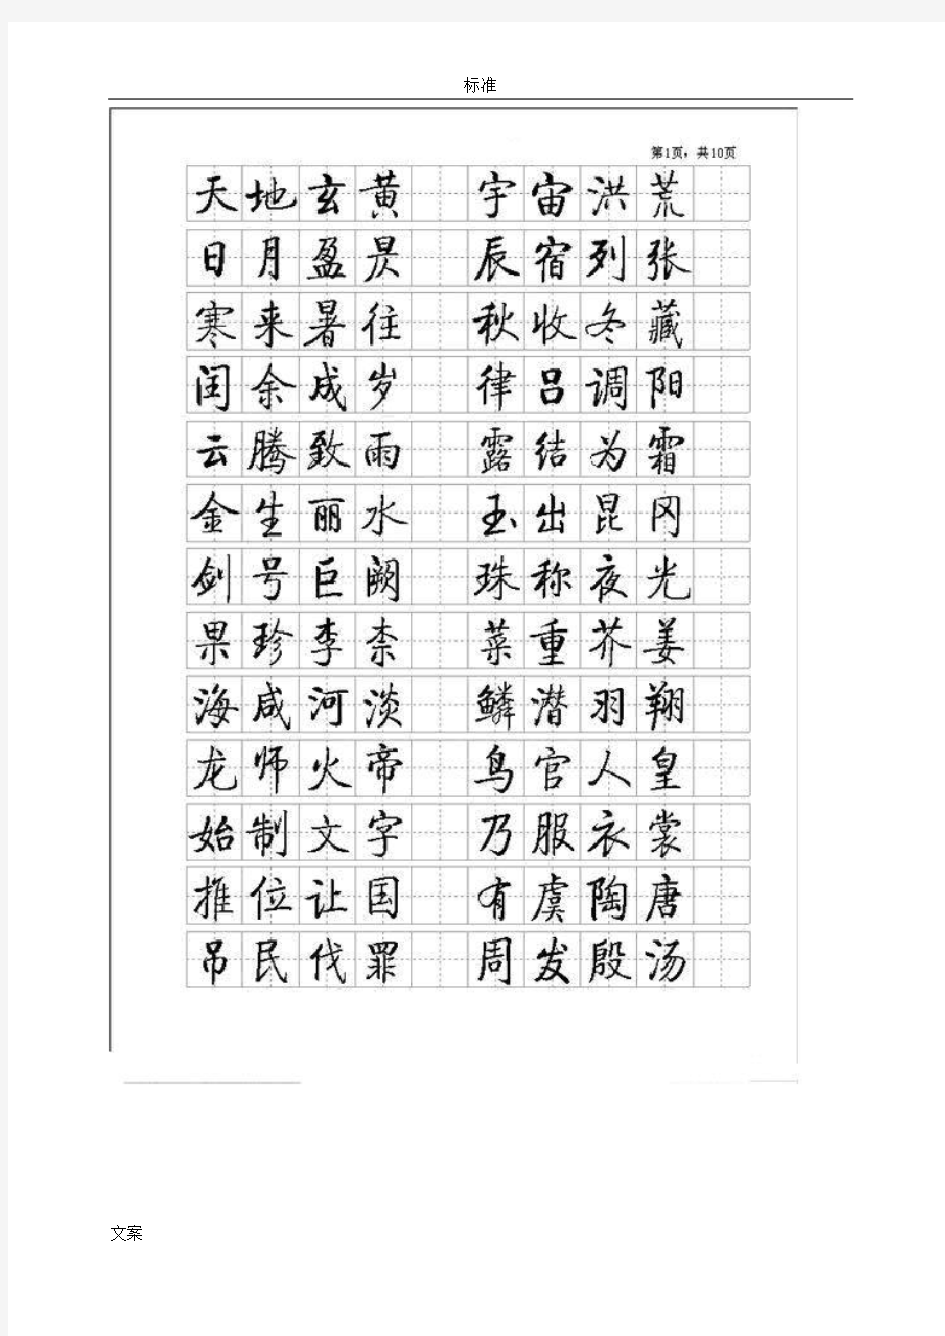 标准
第1页，共10页
天地玄黄 宇宙洪荒
日月盈昃 辰宿列张
寒来暑往 秋收冬藏
闰余成岁 律吕调阳
云腾致雨 露结为霜
金生丽水 玉出昆冈
剑号巨阙 珠称夜光
果珍李柰 菜重芥姜
海咸河淡 鳞潜羽翔
龙师火帝 鸟官人皇
始制文字 乃服衣裳
推位让国 有虞陶唐
吊民伐罪 周发殷汤
文案